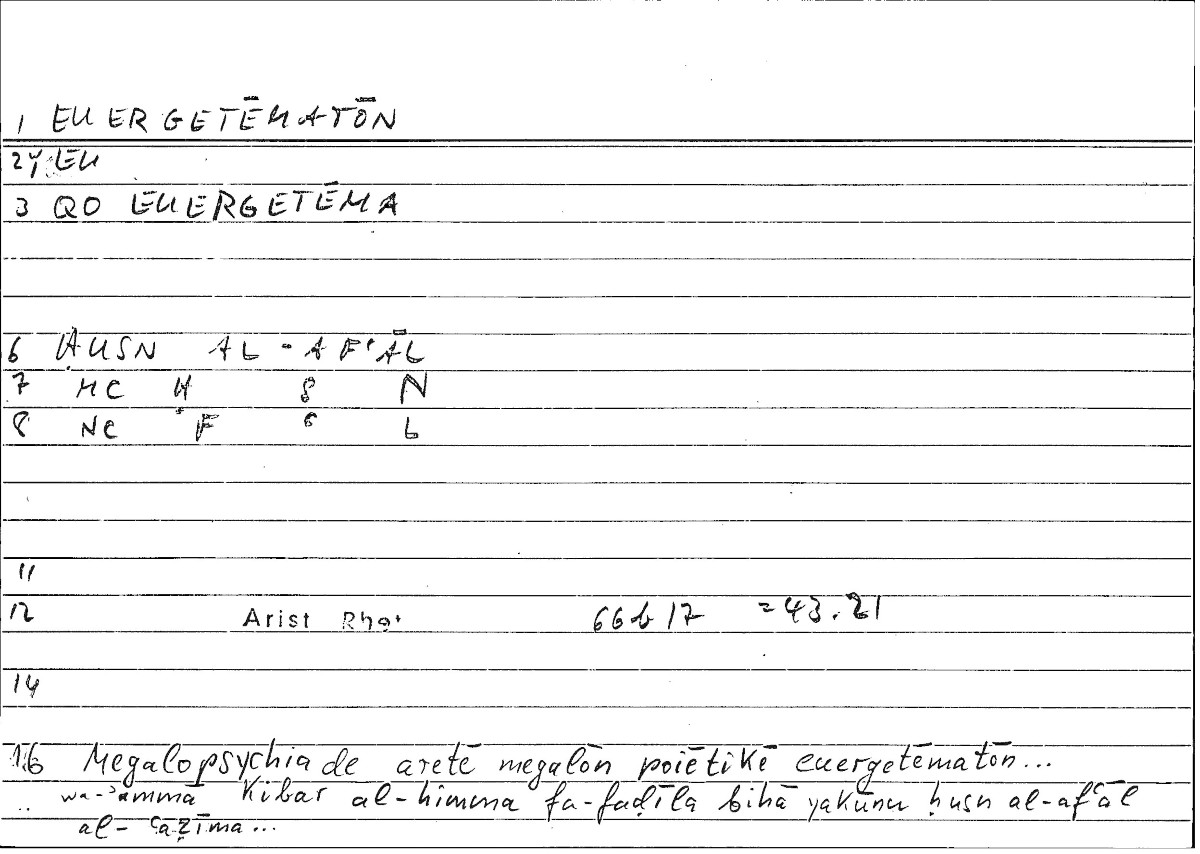 1 EUERGETĒMATŌN
2 EU
3 QO EUERGETĒMA
6 ḤUSN AL-AFʿĀL
7 MC Ḥ S N
8 NC F ʿ L
11
12 Arist Rhet 66b17 =43.21
14
16 Megalopsychia de aretē megalōn poiētikē euergetēmatōn...
wa-ʾammā Kibar al-himma fa-faḍīla bihā yakūnu ḥusn al-afʿāl
al-ʿaẓīma...